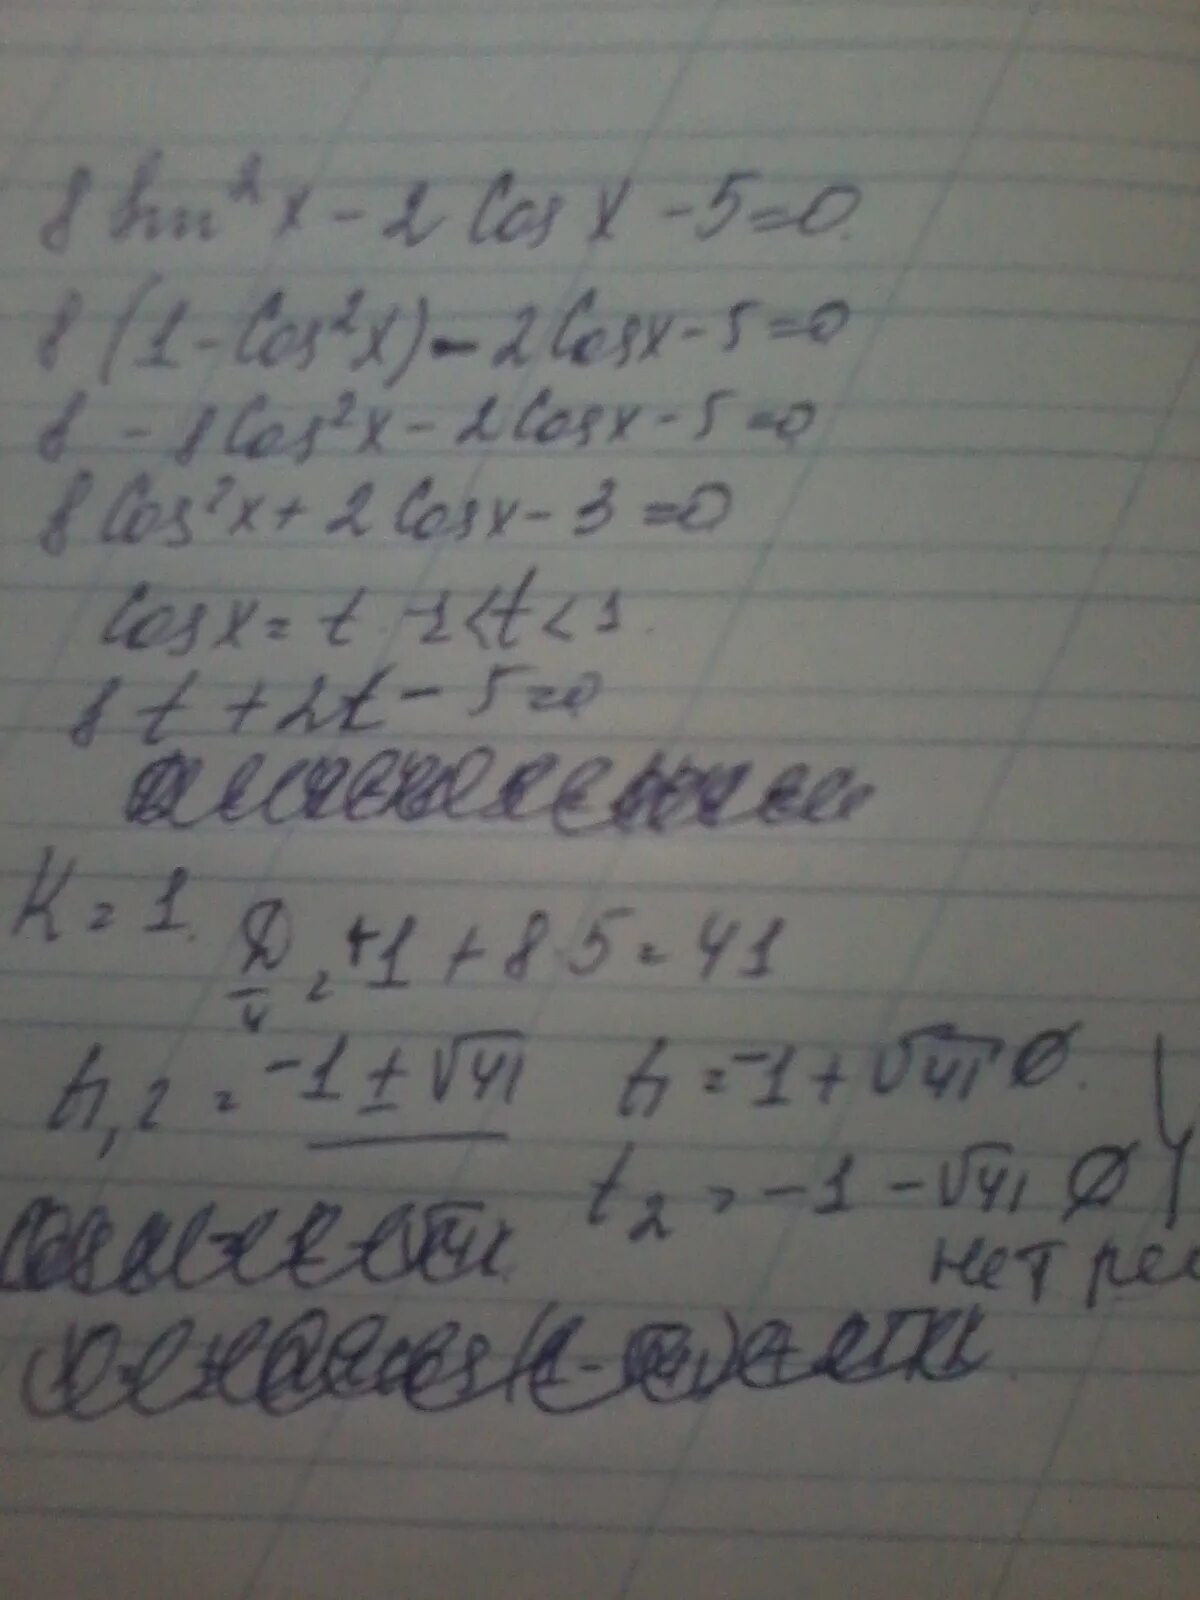 8 sin²x - 2 Cos x - 5 = 0.
8 (1 - Cos²x) - 2 Cosx - 5 = 0
8 - 8 Cos²x - 2 Cosx - 5 = 0
8 Cos²x + 2 Cosx - 3 = 0
Cosx = t. -1 < t < 1.
8 t + 2t - 5 = 0
K = 1. D/4 = +1 + 8 5 = 41
t1,2 = -1 ± √41 t1 = -1 + √41 Ø.
t2 = -1 - √41 Ø
нет